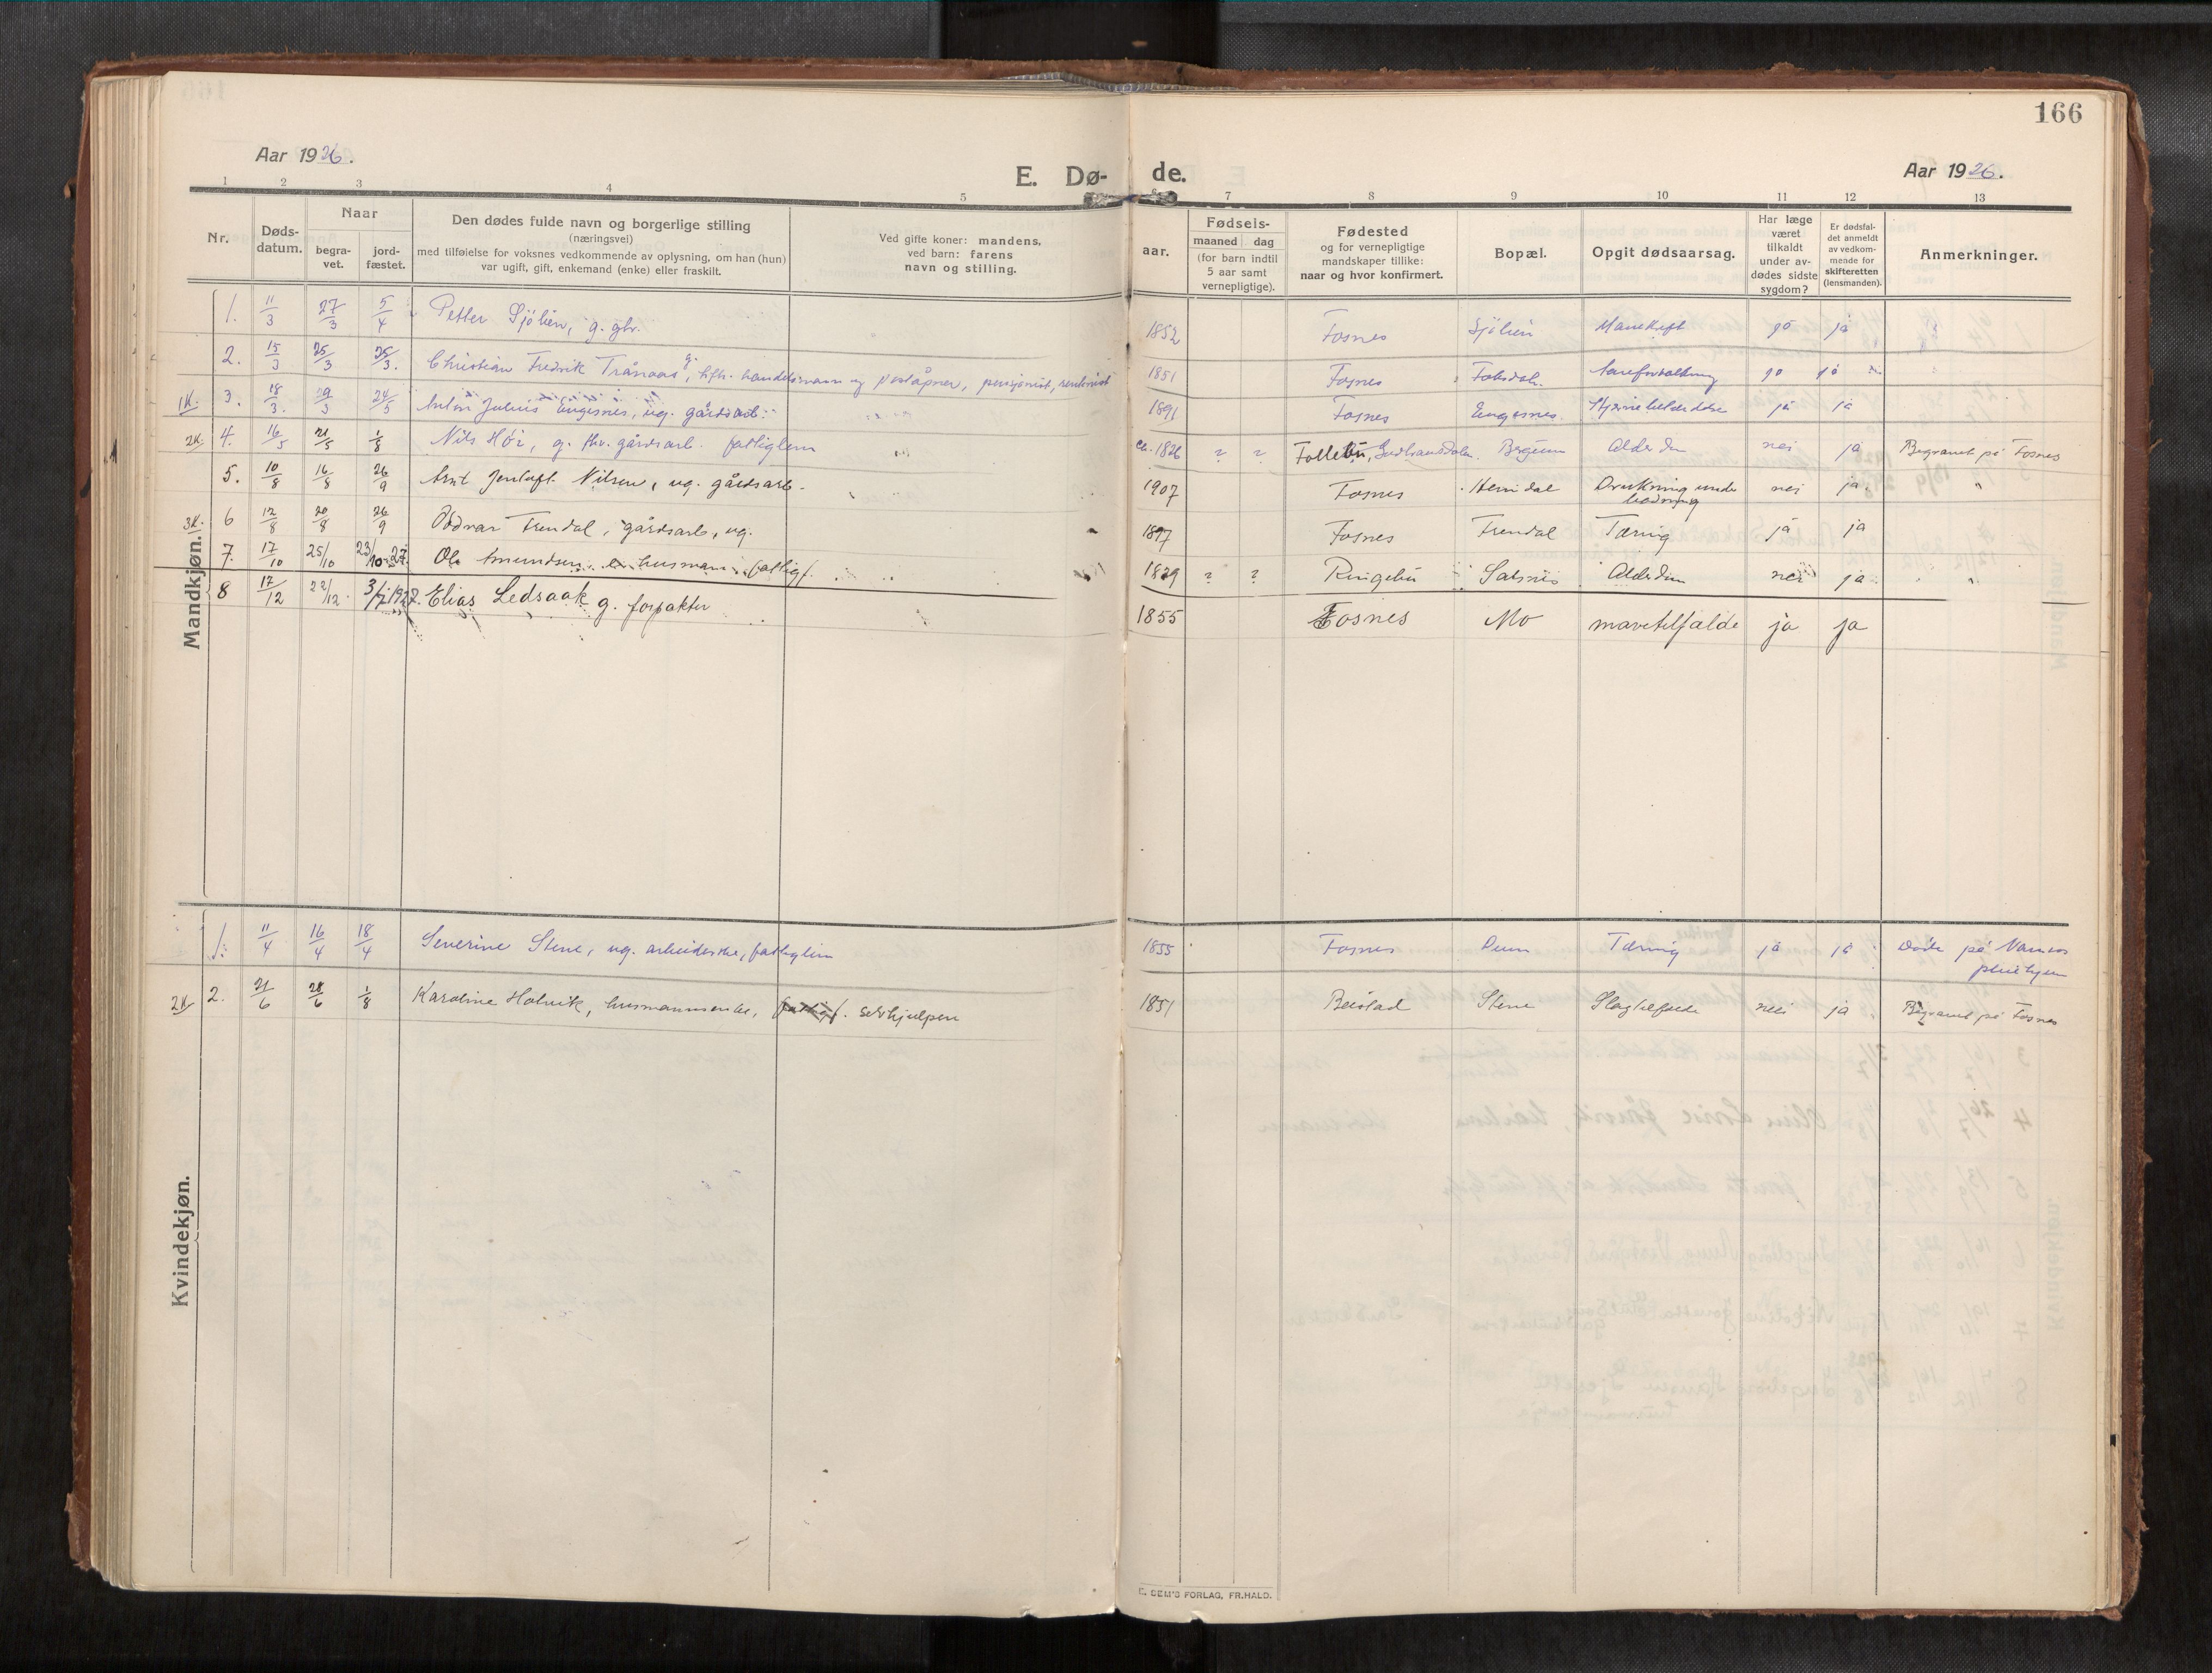 166
Aar 1926.
E. Dø- de.
Aar 1926.
1 2 3 4 5 6 7 8 9 10 11 12 13
Nr.
Døds-
datum.
Naar
begra-
vet.
jord-
fæstet.
Den dødes fulde navn og borgerlige stilling
(næringsvei)
med tilføielse for voksnes vedkommende av oplysning, om han (hun)
var ugift, gift, enkemand (enke) eller fraskilt.
Ved gifte koner: mandens,
ved barn: farens
navn og stilling.
Fødsels-
aar.
maaned dag
(for barn indtil
5 aar samt
vernepligtige).
Fødested
og for vernepligtige
mandskaper tillike:
naar og hvor konfirmert.
Bopæl.
Opgit dødsaarsag.
Har læge
været
tilkaldt
under av-
dødes sidste
sygdom?
Er dødsfal-
det anmeldt
av vedkom-
mende for
skifteretten
(lensmanden).
Anmerkninger.
Mandkjøn.
1. 11/3 27/3 5/4 Petter Sjölien, g. gbr. 1852 Fosnes Sjölien Mavekræft ja ja
2. 15/3 25/3 25/3. Christian Fredrik Trånaas, g. handelsmann og poståpner, pensjonist, rentenist 1851 Fosnes Aareforkalkning ja ja
1K. 3. 18/3. 29/3 24/5 Julius Engesnes, ug. gårdsarb. 1891 Fosnes Engesnes. ja ja
2K. 4. 16/5 21/5 1/8 Nils Hör, g. fhv. gårdsarb. fattiglem ca. 1826 ? ? Follebu, Gudbransdalen. Bergum Alderdom nei ja Begravet på Fosnes
5. 10/8 16/8 26/9 Arnt Jentoft Nilsen, ug. gårdsarb. 1907 Fosnes Drukning under
badning nei ja. "
3K. 6 12/8 20/8 26/9 Oddvar Frendal, gårdsarb, ug. 1897 Fosnes Frendal Tæring ja ja
7. 17/10 25/10 23/10-27. Ole Amundsen husman fattigf. 1829 ? ? Ringebu Salsnes Alderdom nei ja "
8 17/12 22/12. 3/7 1927. Elias Ledsaak g. forpakter 1855 Fosnes Mo mavetilfælde ja ja
Kvindekjøn.
1. 11/4 16/4 18/4 Severine Stene, ug. arbeiderske, fattiglem 1855 Fosnes Duun Tæring ja ja Döde på Namsos
pleiehjem
2K 2. 21/6 28/6 1/8 Karoline Holvik, husmannsenke, fattigf. selvhjulpen 1851 Beistad Stene Slagtilfælde nei ja Begravet på Fosnes
E. SEM'S FORLAG, FR.HALD.